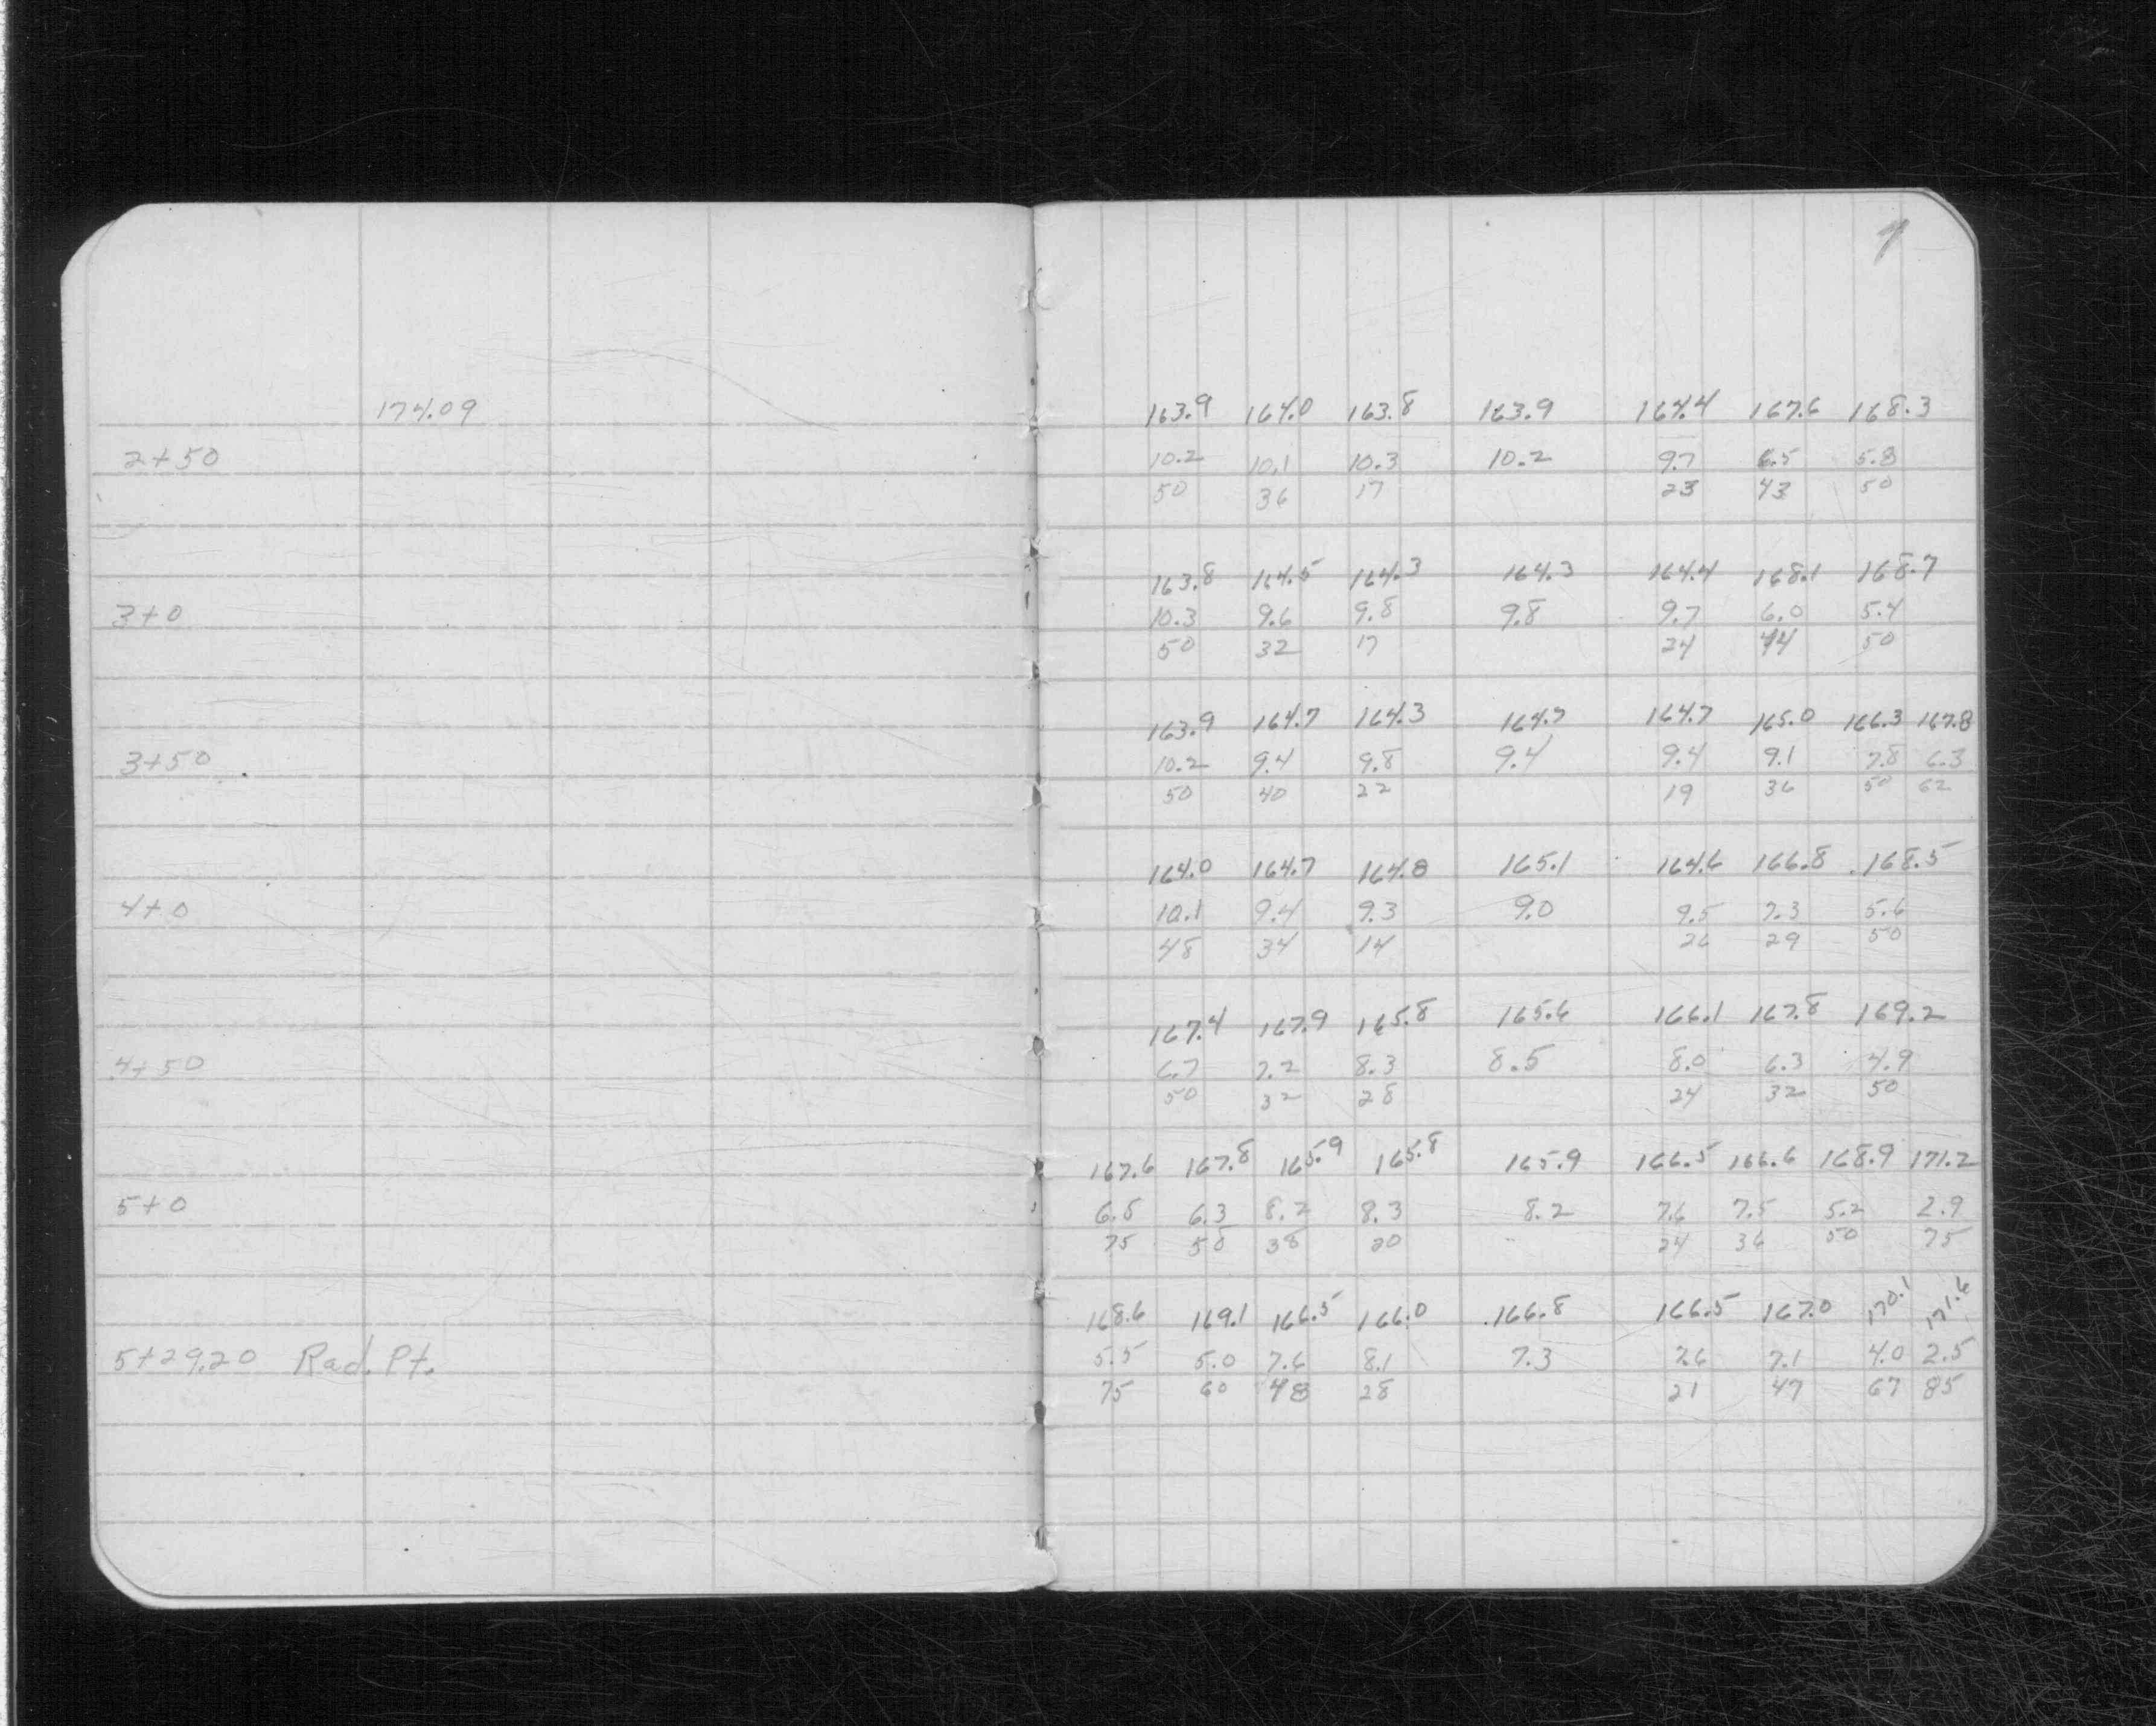 1
174.09 163.9 164.0 163.8 163.9 164.4 167.6 168.3
2+50 10.2 10.1 10.3 10.2 9.7 6.5 5.8
50 36 17 23 43 50
163.8 164.5 164.3 164.3 164.4 168.1 168.7
3+0 10.3 9.6 9.8 9.8 9.7 6.0 5.4
50 32 17 24 44 50
163.9 164.7 164.3 164.7 164.7 165.0 166.3 167.8
3+50 10.2 9.4 9.8 9.4 9.4 9.1 7.8 6.3
50 40 22 19 36 50 62
164.0 164.7 164.8 165.1 164.6 166.8 168.5
4+0 10.1 9.4 9.3 9.0 9.5 7.3 5.6
48 34 14 26 29 50
167.4 167.9 165.8 165.6 166.1 167.8 169.2
4+50 6.7 7.2 8.3 8.5 8.0 6.3 4.9
50 32 28 24 32 50
167.6 167.8 165.9 165.8 165.9 166.5 166.6 168.9 171.2
5+0 6.5 6.3 8.2 8.3 8.2 7.6 7.5 5.2 2.9
75 50 38 20 24 36 50 75
168.6 169.1 166.5 166.0 166.8 166.5 167.0 170.1 171.6
5+29.20 Rad. Pt. 5.5 5.0 7.6 8.1 7.3 7.6 7.1 4.0 2.5
75 60 48 28 21 47 67 85